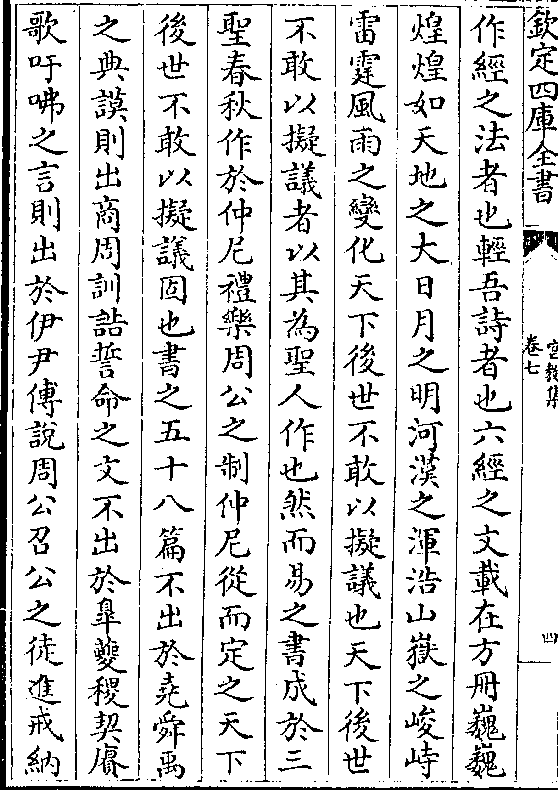 欽定四庫全書
宮教集
卷七
四
作經之法者也輕吾詩者也六經之文載在方冊巍巍
煌煌如天地之大日月之明河漢之渾浩山嶽之峻峙
雷霆風雨之變化天下後世不敢以擬議也天下後世
不敢以擬議者以其為聖人作也然而易之書成於三
聖春秋作於仲尼禮樂周公之制仲尼從而定之天下
後世不敢以擬議固也書之五十八篇不出於堯舜禹
之典謨則出商周訓誥誓命之文不出於臯夔稷契賡
歌吁咈之言則出於伊尹傅說周公召公之徒進戒納